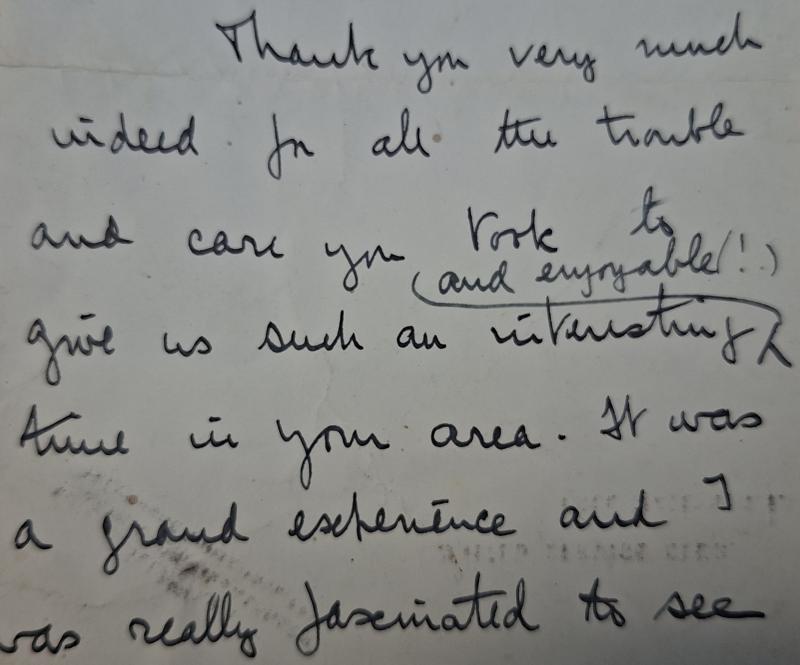 Thank you very much
indeed for all the trouble
and care you took to
(and enjoyable (!)
give us such an interesting
time in your area. It was
a grand experience and I
was really fascinated to see